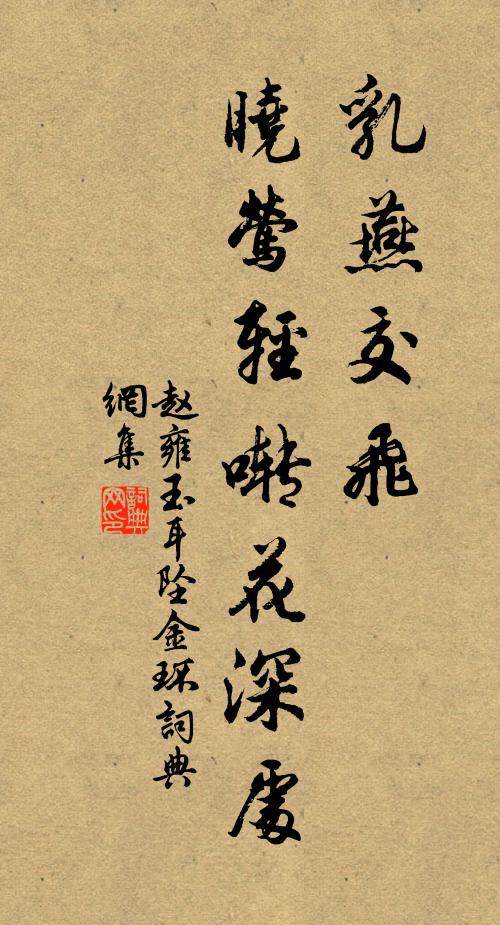 乳燕交飛
曉鶯輕囀花深處
赵雍玉耳坠金環詞典
網集
詞典
网印